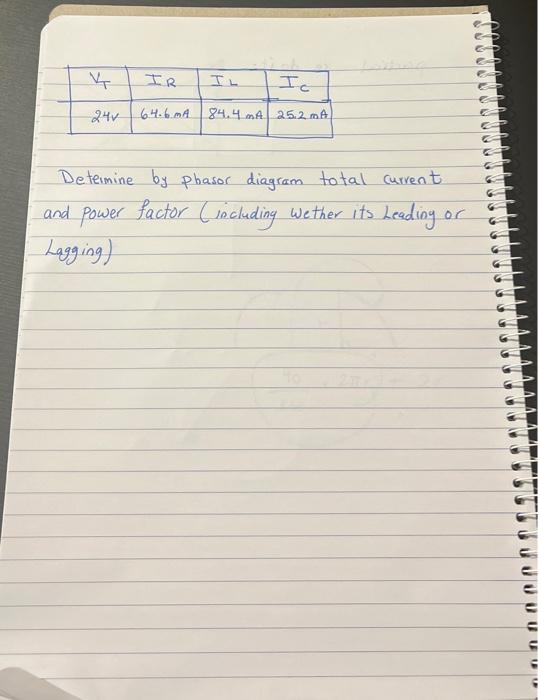 VT IR IL IC
24V 64.6 mA 84.4 mA 25.2 mA
Detemine by phasor diagram total current
and power factor (including wether its Leading or
Lagging)